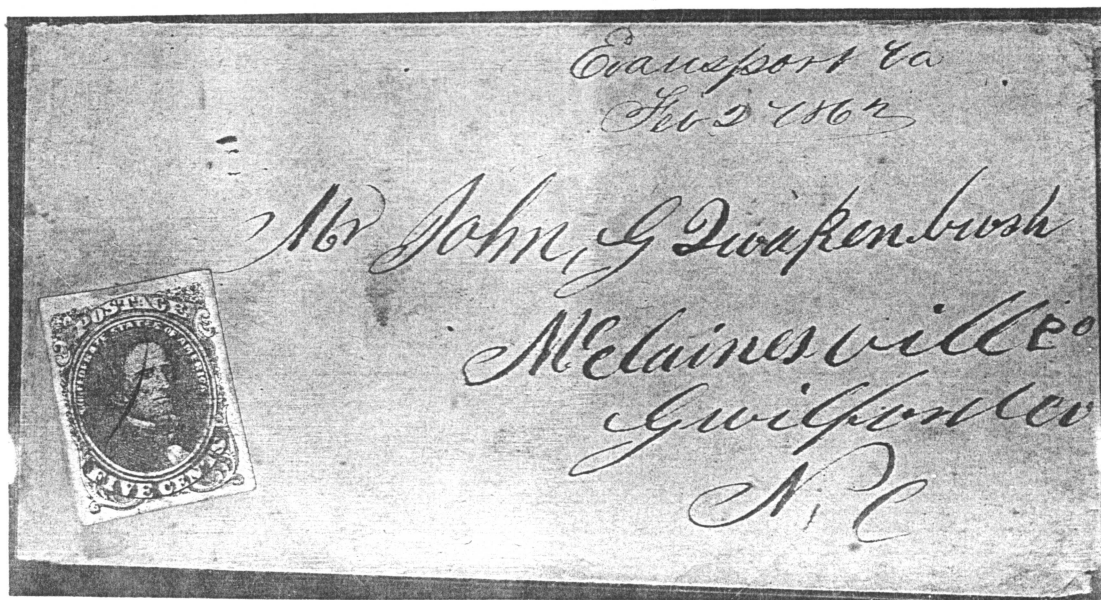 Evansport Va
Feb 2 1862
Mr John, G Quakenbush
Mc lainesville Co
Guilford Co
N, C
POSTAGE
CONFEDERATE STATES OF AMERICA
FIVE CENTS